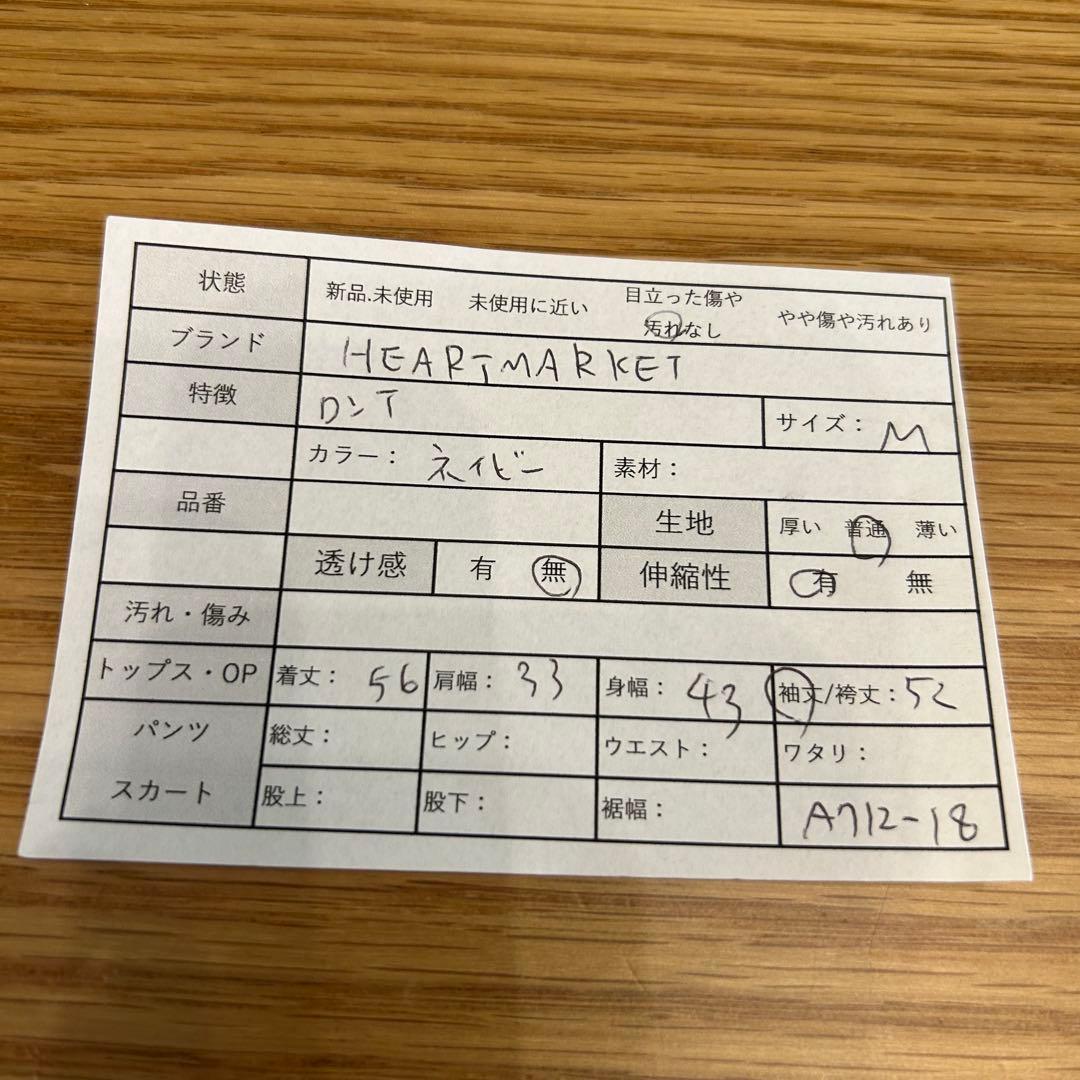 状態 新品.未使用 未使用に近い 目立った傷や汚れなし やや傷や汚れあり
ブランド HEARTMARKET
特徴 ロンT サイズ： M
カラー： ネイビー 素材：
品番 生地 厚い 普通 薄い
透け感 有 無 伸縮性 有 無
汚れ・傷み
トップス・OP 着丈： 56 肩幅： 33 身幅： 43 袖丈/袴丈： 52
パンツ 総丈： ヒップ： ウエスト： ワタリ：
スカート 股上： 股下： 裾幅： A712-18